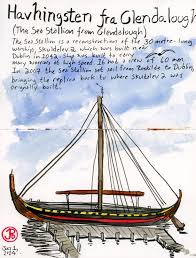 Havhingsten fra Glendalough
(The Sea Stallion from Glendalough)
The Sea Stallion is a reconstruction of the 30 metre-long
warship, Skuldelev 2 which was built near
Dublin in 1042. Ship was built to carry
many warriors at high speed. It had a crew of 60 men
In 2007 the Sea Stallion set sail from Roskilde to Dublin,
bringing the replica back to where Skuldelev 2 was
originally built.